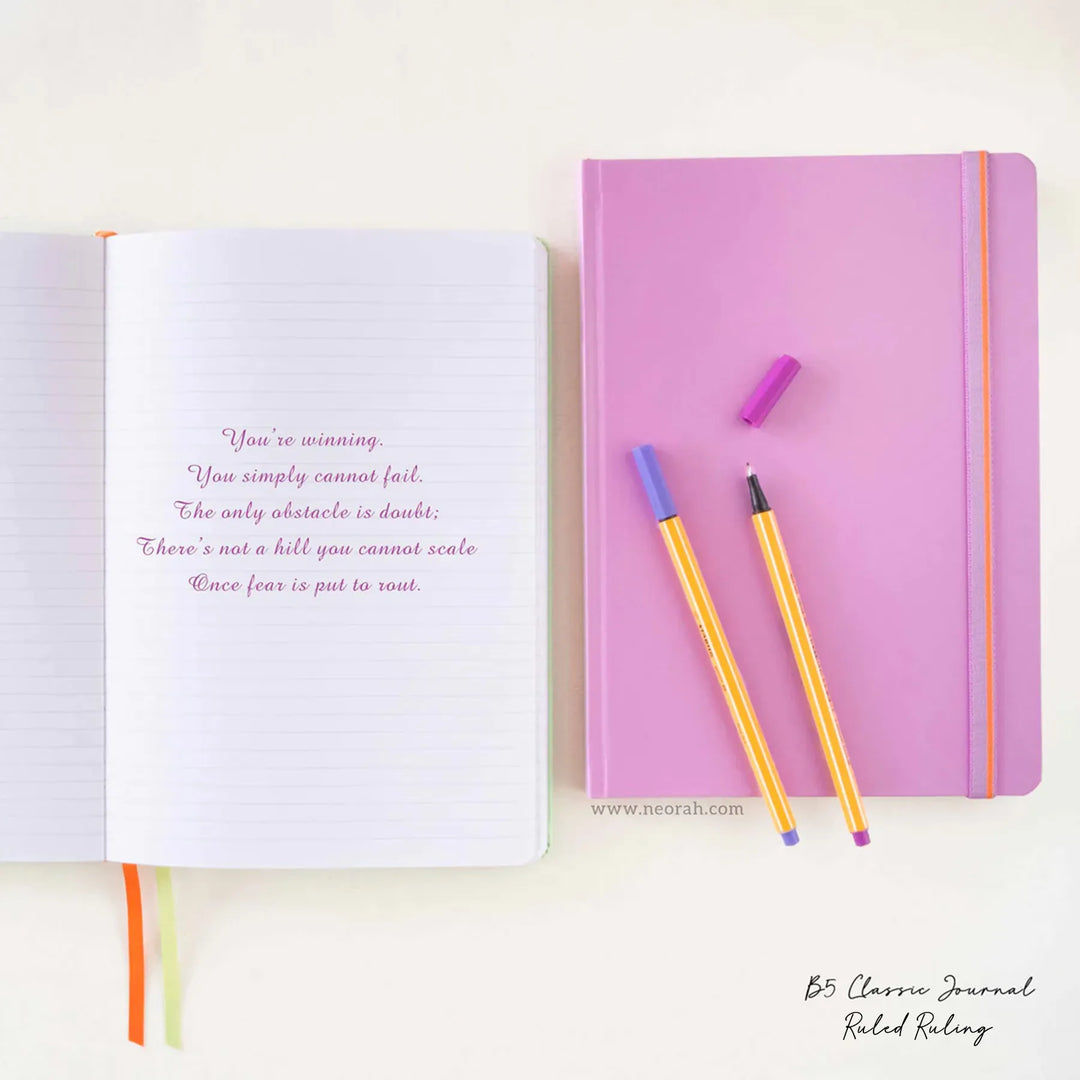 You're winning.
You simply cannot fail.
The only obstacle is doubt;
There's not a hill you cannot scale
Once fear is put to rout.
www.neorah.com
B5 Classic Journal
Ruled Ruling